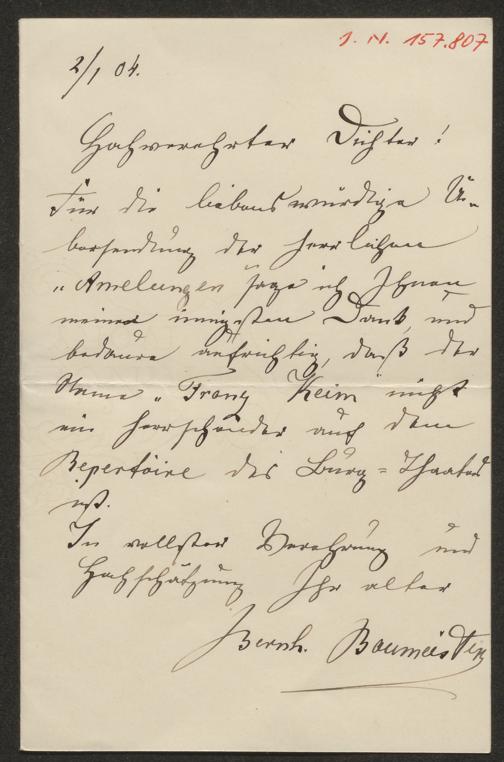 J. N. 157.807
2/1 04.
Hochverehrter Dichter!
Für die liebenswürdige Ü-
bersendung der herrlichen
„Amelungen" sage ich Ihnen
meinen innigsten Dank, und
bedaure aufrichtig, daß der
Name „Franz Keim" nicht
ein herrschender auf dem
Repertoire des Burg-Theaters
ist.
In vollster Verehrung und
Hochschätzung Ihr alter
Bernh. Baumeister